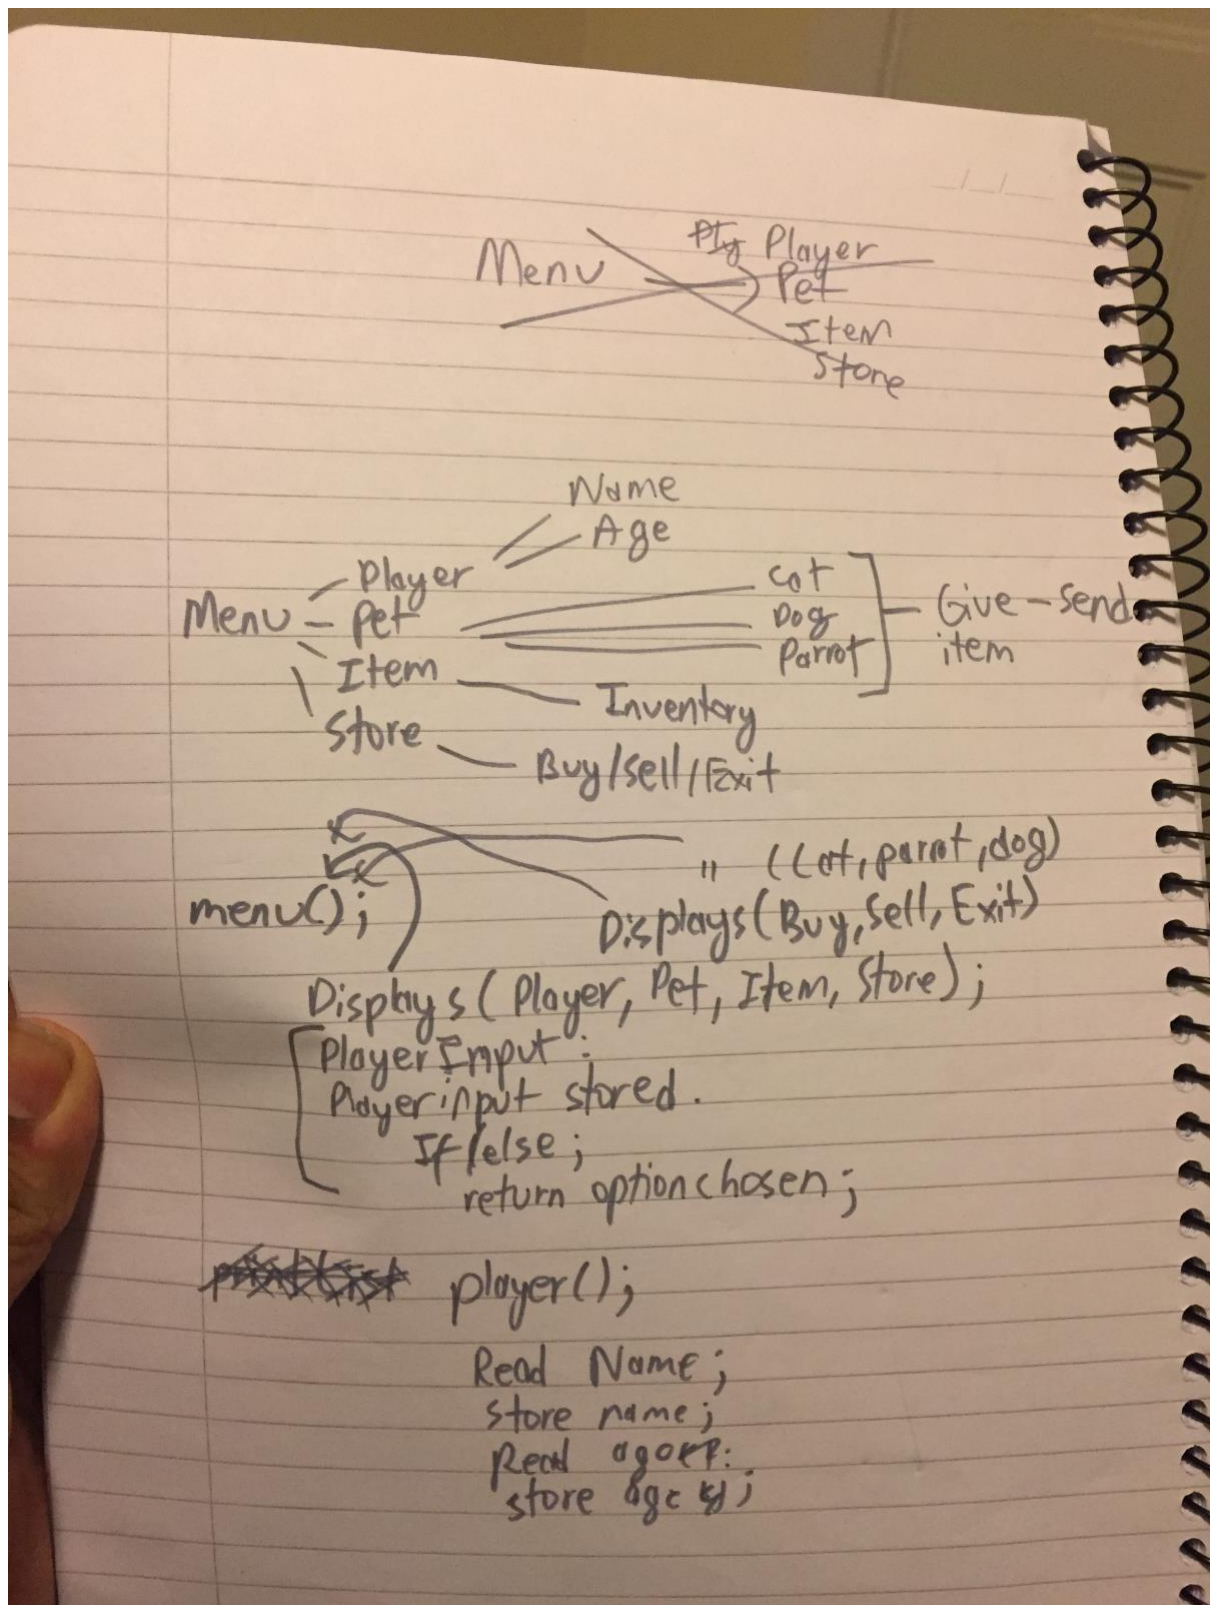 Menu Player
Pet
Item
Store
Name
Age
Menu Player
Pet
Item
Store
Cat
Dog
Parrot
Give - send
item
Inventory
Buy/sell/Exit
" (Cat, parrot, dog)
menu();
Displays (Buy, Sell, Exit)
Displays (Player, Pet, Item, Store);
Player Input :
Player input stored.
If/else;
return option chosen;
player();
Read Name;
store name;
Read
store age ;